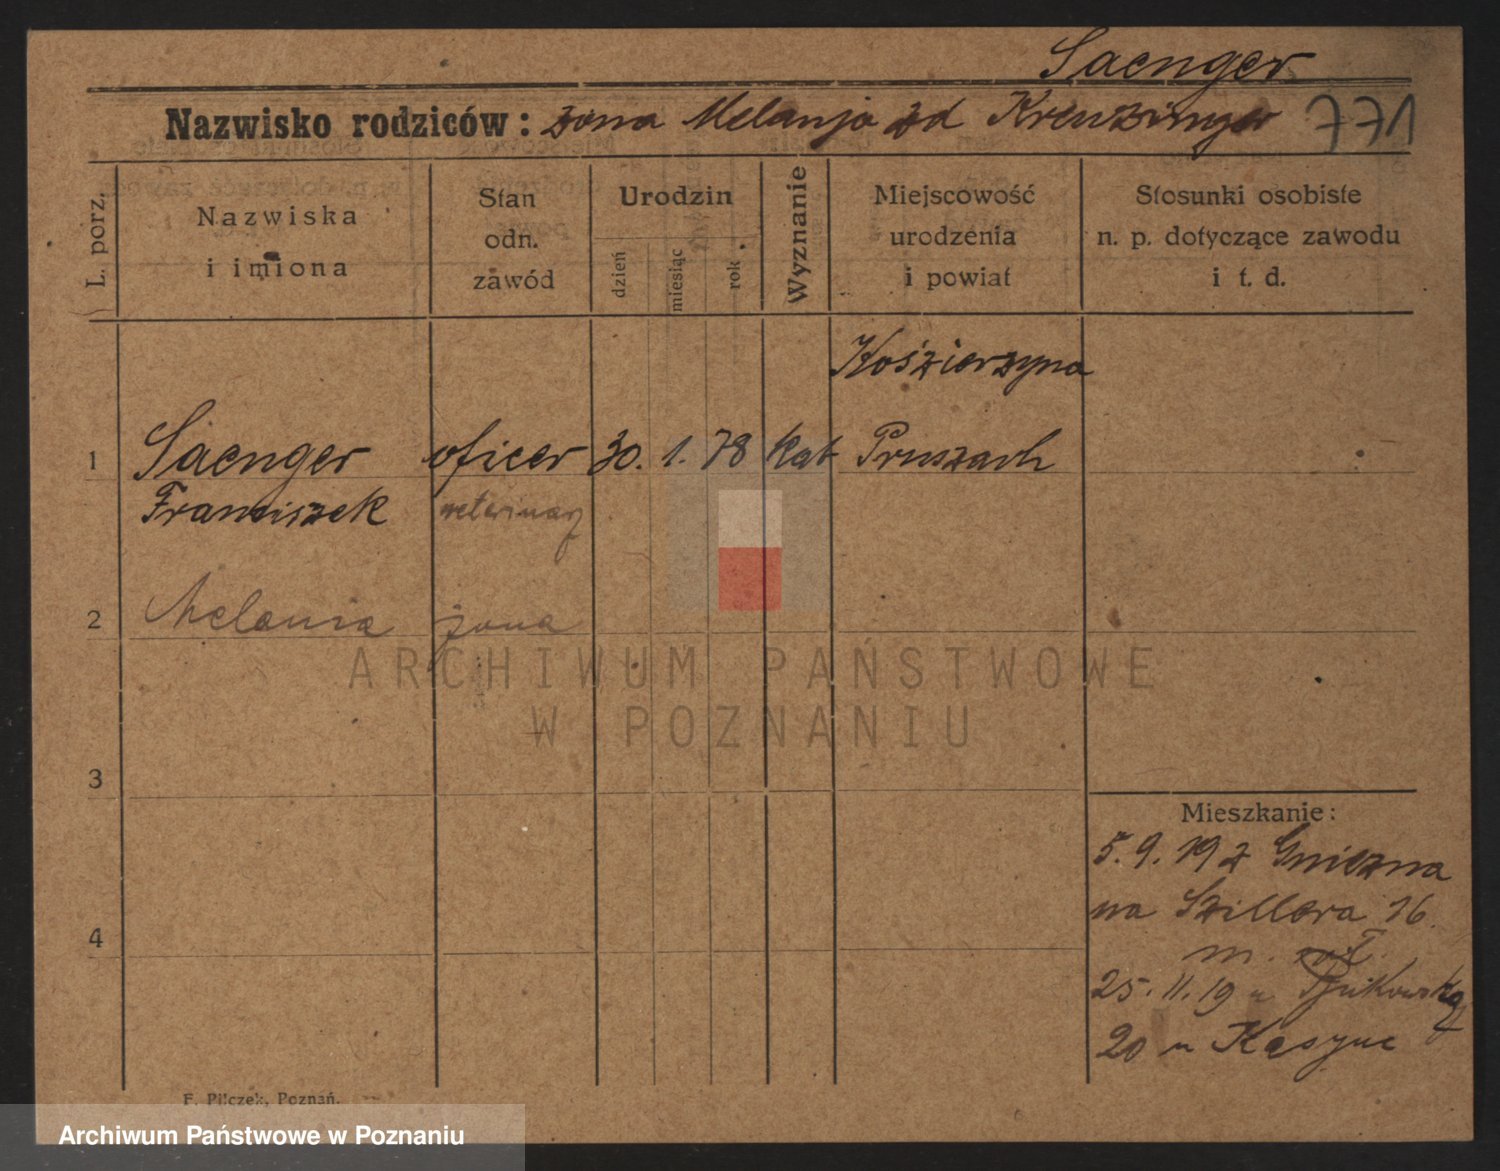 Saenger
Nazwisko rodziców: żona Melanja zd Kreuzinger 771
L. porz.
Nazwiska
i imiona
Stan
odn.
zawód
Urodzin
dzień
miesiąc
rok
Wyznanie
Miejscowość
urodzenia
i powiat
Stosunki osobiste
n. p. dotyczące zawodu
i t. d.
Kośzierzyna
1 Saenger oficer 30. 1. 78 kat Pruszach
Franciszek weterinarz
2 Melania żona
ARCHIWUM PAŃSTWOWE
W POZNANIU
3
Mieszkanie:
5. 9. 19 z Gniezna
na Szillera 16.
4
m.
25. 11. 19
20 Kasyne
F. Pilczek, Poznań.
Archiwum Państwowe w Poznaniu